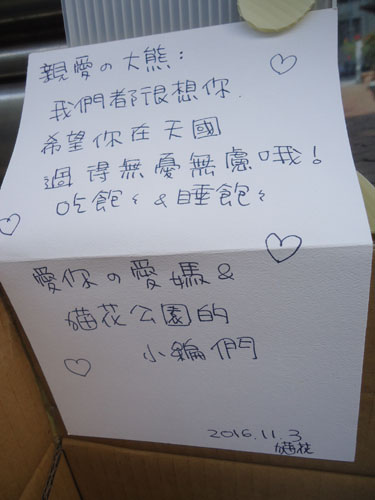 親愛の大熊：
我們都很想你.
希望你在天國
過得無憂無慮哦！
吃飽々&睡飽々
愛你の愛媽&
貓花公園的
小編們
2016.11.3
貓花